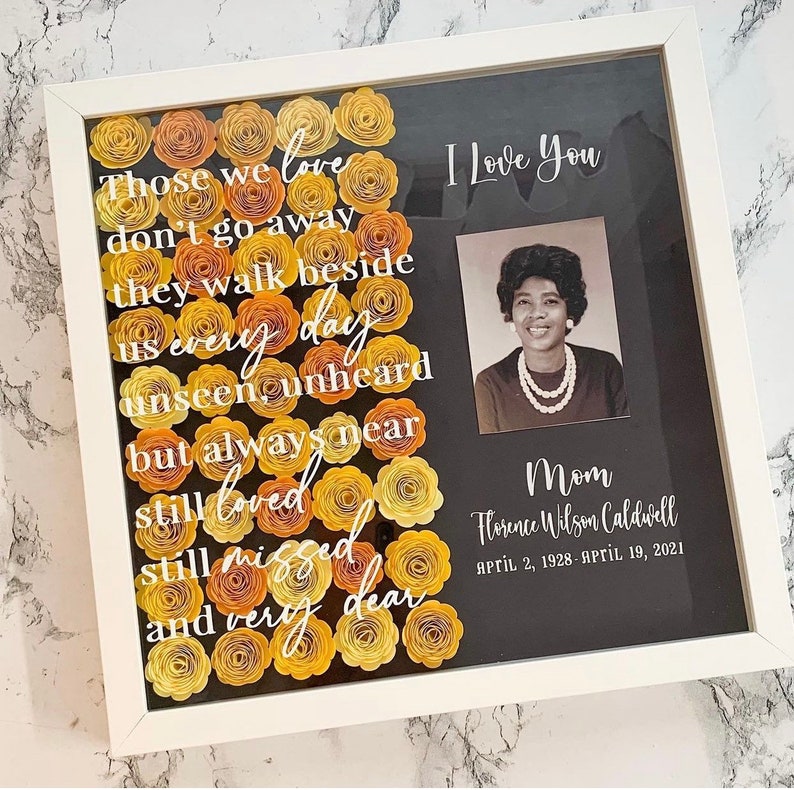 Those we love
don't go away
they walk beside
us every day
unseen, unheard
but always near
still loved
still missed
and very dear
I Love You
Mom
Florence Wilson Caldwell
April 2, 1928 - April 19, 2021